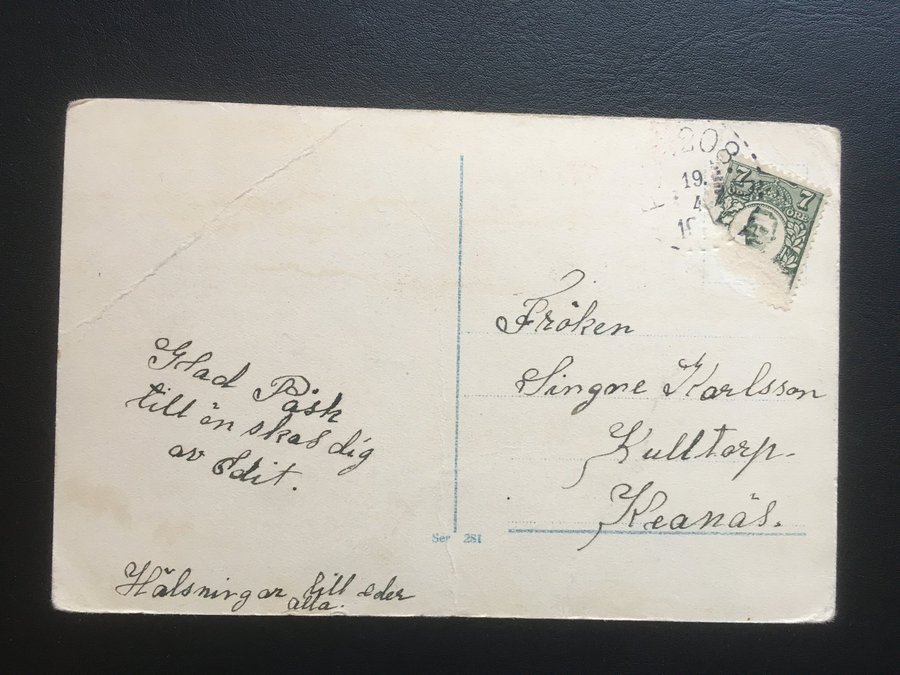 208
19.
4
7 7
ÖRE
Glad Påsk
till ön skas dig
av Edit.
Hälsningar till eder
alla.
Fröken
Singne Karlsson
Kulltorp.
Keanäs.
Ser 281